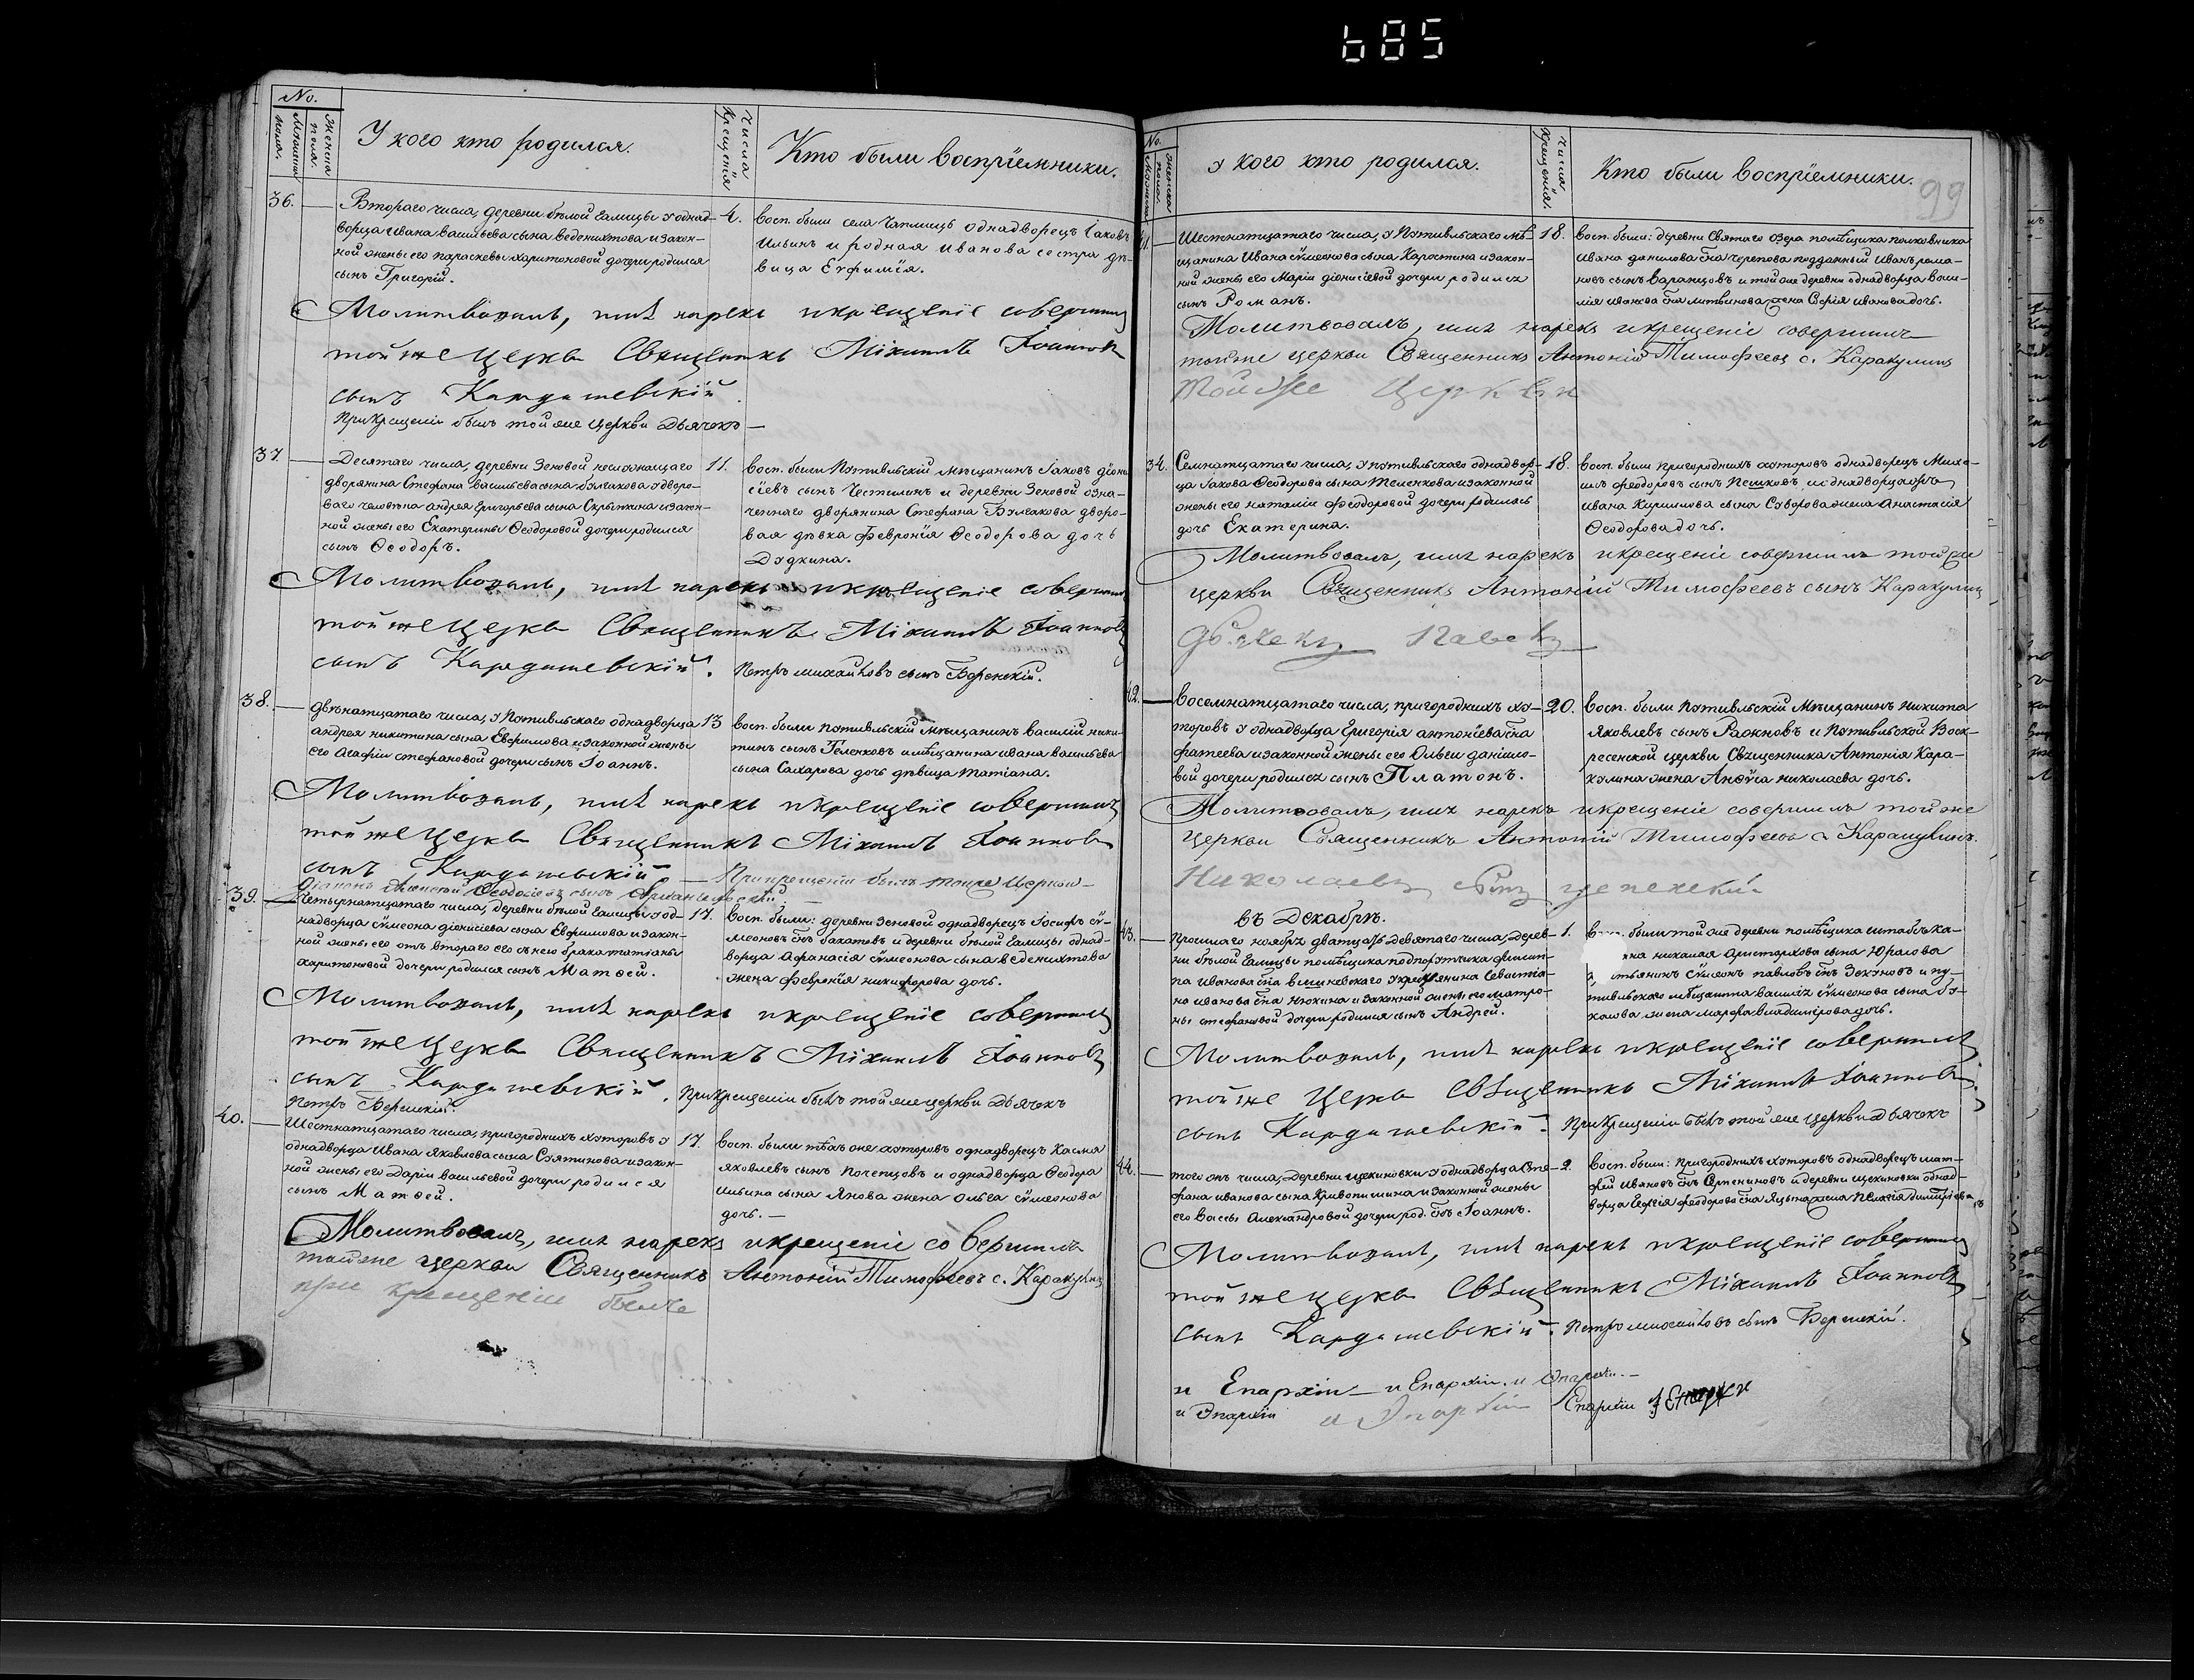 685
99
No.
Мужеска пола.
Женска пола.
У кого кто родился.
Числа крещенія
Кто были воспріемники.
36.
Втораго числа, деревни бѣлой Галицы у однад-
ворца Ивана васильева сына веденихтова и закон-
ной жены его параскевы харитоновой дочери родился
сынъ Григорій.
4.
восп. были села Чаплищъ однадворецъ Іаковъ
Ильинъ и родная иванова сестра дѣ-
вица Евфимія.
Молитвовалъ, имя нарекъ и крещеніе совершилъ
той же Церкви Священникъ Міхаилъ Іоанновъ
сынъ Кардашевскій.
При Крещеніи былъ той же Церкви Дьячекъ
37.
Десятаго числа, деревни Зеновой
дворянина Стефана васильева сына булгакова у дворо-
ваго человѣка андрея григорьева сына Скрыпкина и закон-
ной жены его Екатерины Ѳеодоровой дочери родился
сынъ Ѳеодоръ.
11.
восп. были Путивльскій Мѣщанинъ Іаковъ діони-
сіевъ сынъ Честилинъ и деревни Зеновой озна-
ченнаго дворянина Стефана Булгакова дворо-
вая дѣвка февронія Ѳеодорова дочь
Дудкина.
Молитвовалъ, имя нарекъ и крещеніе совершилъ
той же Церкви Священникъ Міхаилъ Іоанновъ
сынъ Кардашевскій.
Петръ михайловъ сынъ
38.
двѣнатцатаго числа, у Путивльскаго однадворца
андрея никитина сына Евфимова и законной жены
его Агафіи стефановой дочери сынъ Іоаннъ.
13
восп. были путивльскій Мѣщанинъ василій ники-
тинъ сынъ Геленковъ и мѣщанина ивана васильева
сына Сахарова дочь дѣвица татіана.
Молитвовалъ, имя нарекъ и крещеніе совершилъ
той же Церкви Священникъ Міхаилъ Іоанновъ
сынъ Кардашевскій
При крещеніи былъ тоиже Церкви
39.
Четырнатцатаго числа, деревни бѣлой Галицы у од-
надворца сѵмеона діонисіева сына Евфимова и закон-
ной жены его отъ втораго его съ нею брака татіаны
харитоновой дочери родился сынъ Матѳей.
17.
восп. были: деревни Зеновой однадворецъ Іосифъ сѵ-
меоновъ снъ бахатовъ и деревни бѣлой Галицы однад-
ворца Афанасія сѵмеонова сына веденихтова
жена февронія никифорова дочь.
Молитвовалъ, имя нарекъ и крещеніе совершилъ
той же Церкви Священникъ Міхаилъ Іоанновъ
сынъ Кардашевскій. При Крещеніи былъ той же церкви Дьячекъ
40.
Шестнатцатаго числа, пригородныхъ хуторовъ у
однадворца Ивана Яковлева сына Сѣятинова и закон-
ной жены его Даріи васильевой дочери родился
сынъ Матѳей.
17.
восп. были тѣхъ же хуторовъ однадворецъ Касма
яковлевъ сынъ Почепцовъ и однадворца Ѳеодора
Ильина сына Янова жена Ольга сѵмеонова
дочь.
Молитвовалъ, имя нарекъ и крещеніе совершилъ
тойже церкви Священникъ Антоній Тимофеевъ с. Каракулинъ
при крещеніи былъ
No.
У кого кто родился.
Числа крещенія.
Кто были воспріемники.
41.
Шестнатцатаго числа, у Путивльскаго мѣ-
щанина Ивана сѵмеонова сына Коростина и закон-
ной жены его Маріи діонисіевой дочери родился
сынъ Романъ.
18.
восп. были: деревни Святаго Озера помѣщика полковника
Ивана данилова сна черепова подданный Иванъ рома-
новъ сынъ Варанцовъ и той же деревни однадворца васи-
лія иванова сна литвинова жена Софія иванова дочь.
Молитвовалъ, имя нарекъ и крещеніе совершилъ
тойже церкви Священникъ Антоній Тимофеевъ с. Каракулинъ
той же Церкви
34.
Семнатцатаго числа, у путивльскаго однадвор-
ца Іакова Ѳеодорова сына Теленкова и законной
жены его наталіи феодоровой дочери родилась
дочь Екатерина.
18.
восп. были пригородныхъ хуторовъ однадворецъ Миха-
илъ феодоровъ сынъ Пешковъ, и однадворца
ивана Кирилова сына Суворова жена Анастасія
Ѳеодорова дочь.
Молитвовалъ, имя нарекъ и крещеніе совершилъ той же
церкви Священникъ Антоній Тимофеевъ сынъ Каракулинъ
Дьячекъ Павелъ
42.
восемнатцатаго числа, пригородныхъ ху-
торовъ у однадворца Григорія антоніева сна
фатеева и законной жены его Ольги даніило-
вой дочери родился сынъ Платонъ.
20.
восп. были Путивльскій Мѣщанинъ Никита
Яковлевъ сынъ Ражновъ и Путивльской Воск-
ресенской церкви Священника Антонія Кара-
кулина жена Анѳуса николаева дочь.
Молитвовалъ, имя нарекъ и крещеніе совершилъ той же
церкви Священникъ Антоній Тимофеевъ с. Каракулинъ.
Николаевъ сынъ
въ Декабрѣ.
43.
Прошлаго ноября дватцать девятаго числа, Дерев-
ни бѣлой Галицы помѣщика подпорутчика филип-
па Иванова сна вишневскаго у крестьянина Севастія-
на иванова сна Нюхина и законной жены его матро-
ны стефановой дочери родился сынъ Андрей.
1.
были той же деревни помѣщика штабъ ка-
николая Аристархова сына Юрасова
сѵмеонъ павловъ снъ Зекуновъ и пу-
тивльскаго мѣщанина василія сѵмеонова сына бу-
жена марфа владимерова дочь.
Молитвовалъ, имя нарекъ и крещеніе совершилъ
той же Церкви Священникъ Міхаилъ Іоанновъ
сынъ Кардашевскій. При Крещеніи былъ той же Церкви дьячекъ
44.
того жъ числа, Деревни щекиновки у однадворца Сте-
фана иванова сына Кривопишина и законной жены
его вассы Александровой дочери род. снъ Іоаннъ.
2.
восп. были: пригородныхъ хуторовъ однадворецъ мат-
фей Ивановъ снъ и деревни щекиновки однад-
ворца Георгія феодорова сна Яцына жена Пелагія димитріева
Молитвовалъ, имя нарекъ и крещеніе совершилъ
той же Церкви Священникъ Міхаилъ Іоанновъ
сынъ Кардашевскій. Петръ михайловъ сынъ
и Епархіи — и Епархіи. и Эпархіи.
и Эпархіи и Эпархіи Епархіи